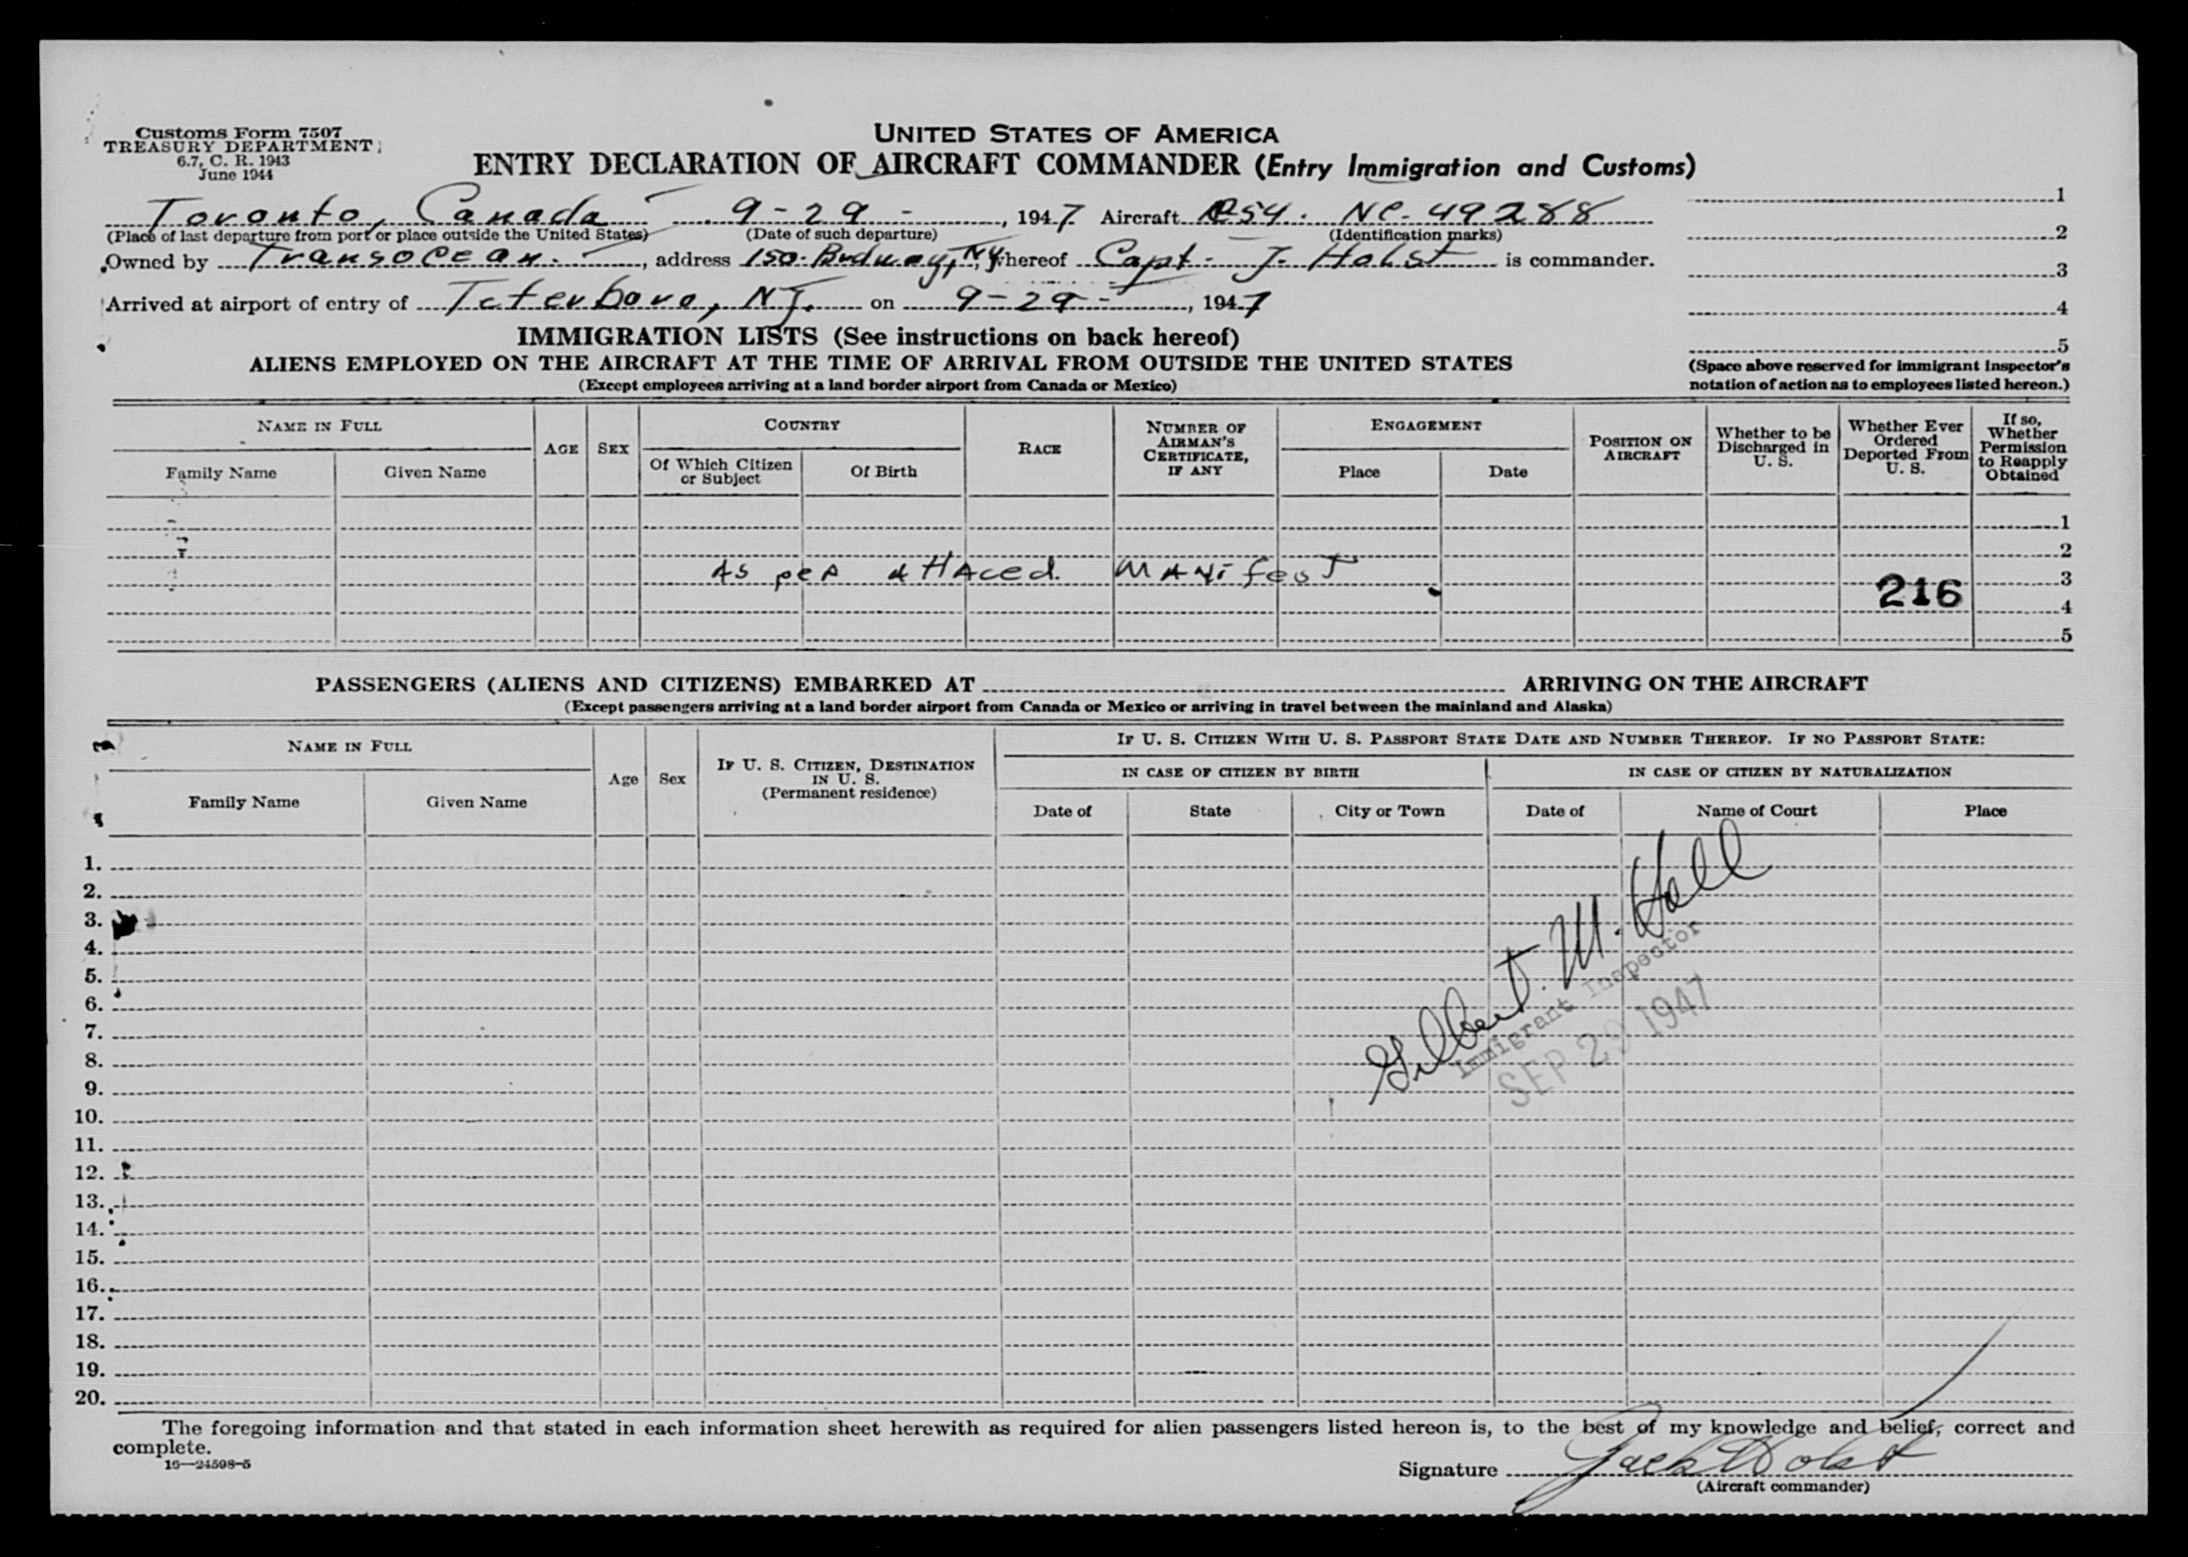 Customs Form 7507
TREASURY DEPARTMENT
6.7, C. R. 1943
June 1944
UNITED STATES OF AMERICA
ENTRY DECLARATION OF AIRCRAFT COMMANDER (Entry Immigration and Customs)
Toronto, Canada 9-29-, 1947 Aircraft C54. NC-49288
(Place of last departure from port or place outside the United States) (Date of such departure) (Identification marks)
Owned by Transocean, address 150 Brdway, N.Y. thereof Capt. J. Holst is commander.
Arrived at airport of entry of Teterboro, NJ. on 9-29-, 1947
1
2
3
4
5
(Space above reserved for immigrant inspector's
notation of action as to employees listed hereon.)
IMMIGRATION LISTS (See instructions on back hereof)
ALIENS EMPLOYED ON THE AIRCRAFT AT THE TIME OF ARRIVAL FROM OUTSIDE THE UNITED STATES
(Except employees arriving at a land border airport from Canada or Mexico)
NAME IN FULL
Family Name Given Name
AGE
SEX
COUNTRY
Of Which Citizen or Subject
Of Birth
RACE
NUMBER OF AIRMAN'S CERTIFICATE, IF ANY
ENGAGEMENT
Place Date
POSITION ON AIRCRAFT
Whether to be Discharged in U. S.
Whether Ever Ordered Deported From U. S.
If so, Whether Permission to Reapply Obtained
1
2
As per attaced manifest 3
216 4
5
PASSENGERS (ALIENS AND CITIZENS) EMBARKED AT ARRIVING ON THE AIRCRAFT
(Except passengers arriving at a land border airport from Canada or Mexico or arriving in travel between the mainland and Alaska)
NAME IN FULL
Family Name Given Name
Age
Sex
IF U. S. CITIZEN, DESTINATION IN U. S.
(Permanent residence)
IF U. S. CITIZEN WITH U. S. PASSPORT STATE DATE AND NUMBER THEREOF. IF NO PASSPORT STATE:
IN CASE OF CITIZEN BY BIRTH
Date of State City or Town
IN CASE OF CITIZEN BY NATURALIZATION
Date of Name of Court Place
1.
2.
3.
4.
5.
6.
7.
8.
9.
10.
11.
12.
13.
14.
15.
16.
17.
18.
19.
20.
Gilbert M. Hall
Immigrant Inspector
SEP 29 1947
The foregoing information and that stated in each information sheet herewith as required for alien passengers listed hereon is, to the best of my knowledge and belief, correct and
complete.
16—24598-5
Signature Jack Holst
(Aircraft commander)